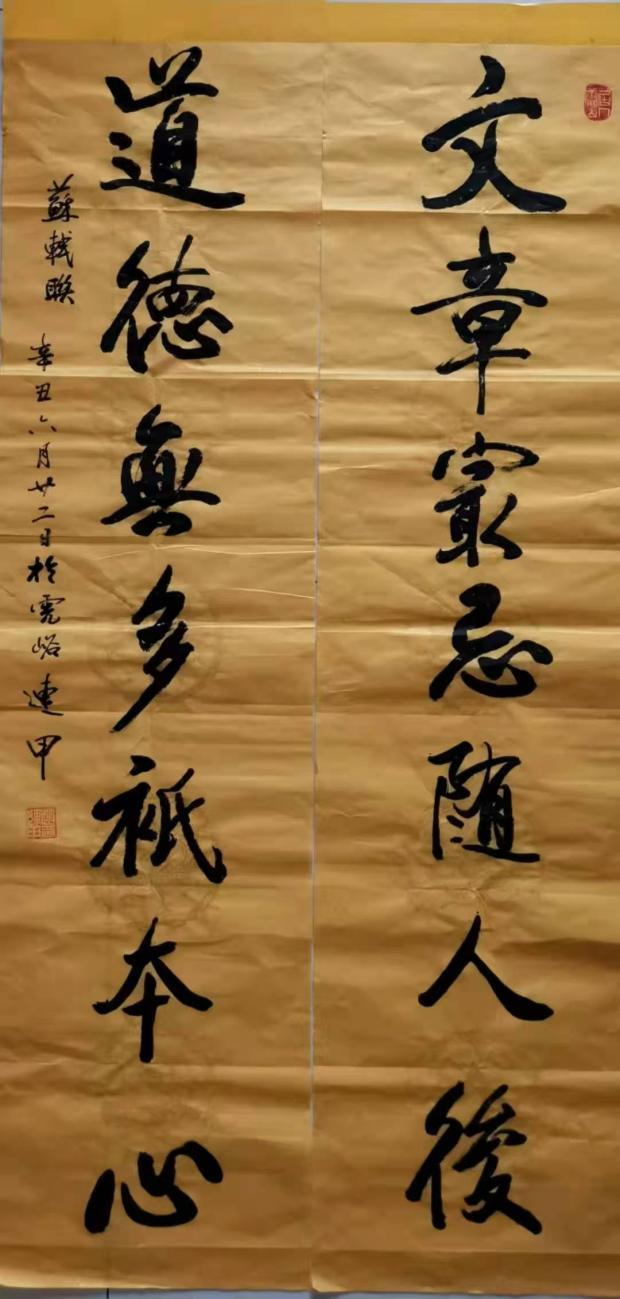 文章㝡忌随人後
道德無多祇本心
蘇軾聯 辛丑六月廿二日於霓峪 连甲